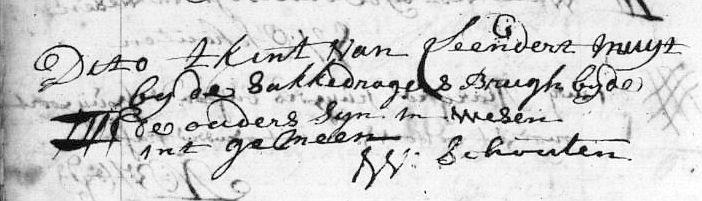 Dito t kint van Leendert muyt
by de Sakkedragers Brugh byde
III de ouders Syn in wesen
int gemeen
W: Schouten